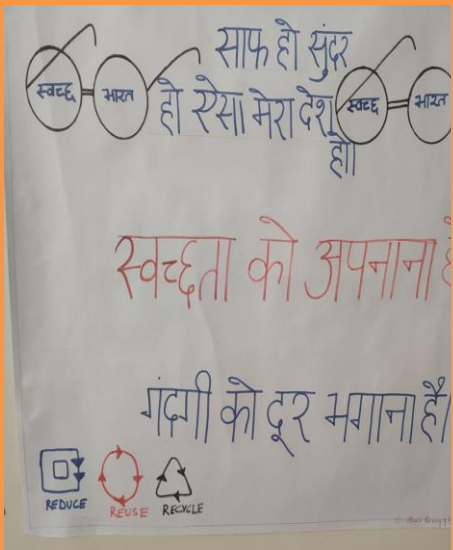 साफ हो सुंदर
स्वच्छ भारत हो ऐसा मेरा देश स्वच्छ भारत
हो।
स्वच्छता को अपनाना है
गंदगी को दूर भगाना है।
REDUCE REUSE RECYCLE